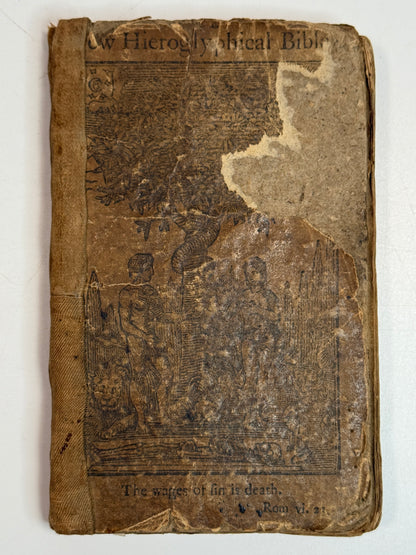 ew Hieroglyphical Bible
The wages of ſin is death.
Rom vi. 23